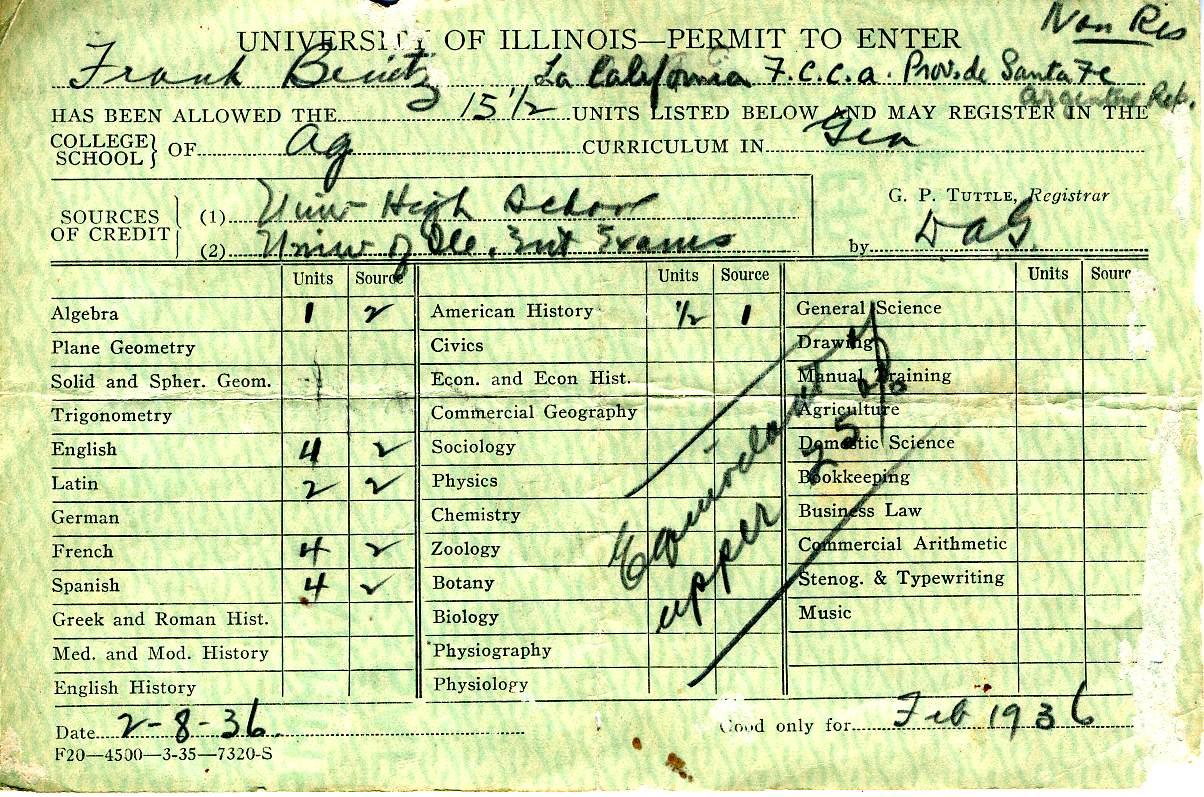 Non Res
UNIVERSITY OF ILLINOIS—PERMIT TO ENTER
Frank Benitz La California F.C.C.A. Prov. de Santa Fe
Argentine Rep.
HAS BEEN ALLOWED THE 15 1/2 UNITS LISTED BELOW AND MAY REGISTER IN THE
COLLEGE
SCHOOL } OF Ag CURRICULUM IN Gen
SOURCES OF CREDIT
(1) Univ High School
(2) Univ of Ill. Ent Exams
G. P. TUTTLE, Registrar
by DAG.
Units Source Units Source Units Sourc
Algebra 1 2 American History 1/2 1 General Science
Plane Geometry Civics Drawing
Solid and Spher. Geom. Econ. and Econ Hist. Manual Training
Trigonometry Commercial Geography Agriculture
English 4 2 Sociology Domestic Science
Latin 2 2 Physics Bookkeeping
German Chemistry Business Law
French 4 2 Zoology Commercial Arithmetic
Spanish 4 2 Botany Stenog. & Typewriting
Greek and Roman Hist. Biology Music
Med. and Mod. History Physiography
English History Physiology
upper 25%
Date 2-8-36. Good only for Feb 1936
F20—4500—3-35—7320-S